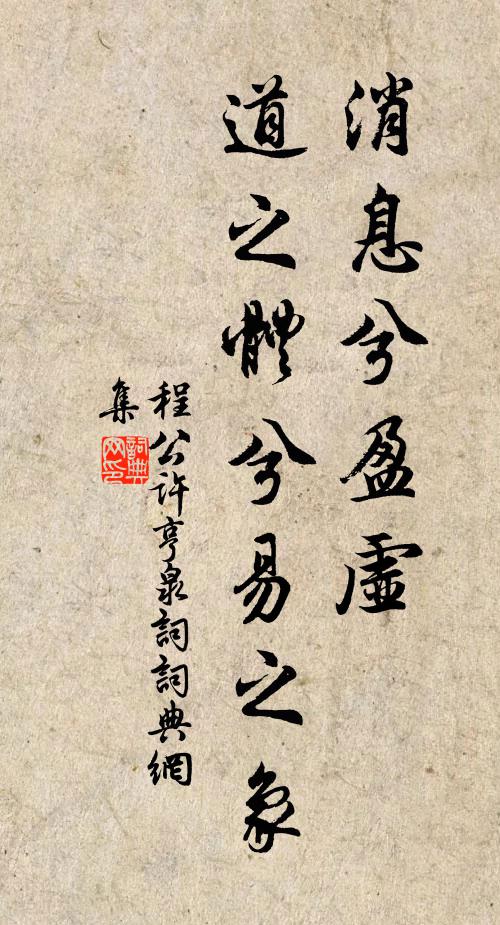 消息兮盈虛
道之體兮易之象
程公許亨泉詞詞典網
集
詞典網印